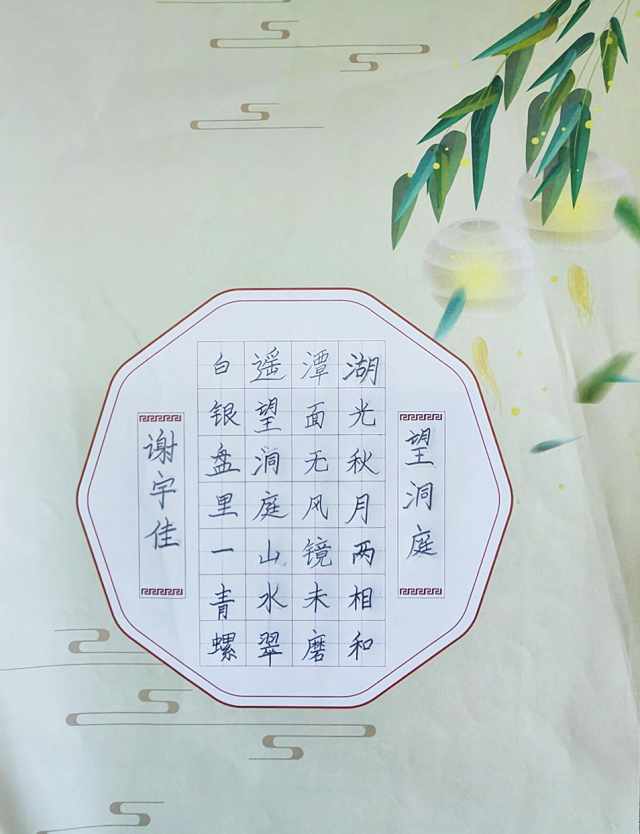 望洞庭
湖光秋月两相和
潭面无风镜未磨
遥望洞庭山水翠
白银盘里一青螺
谢宇佳